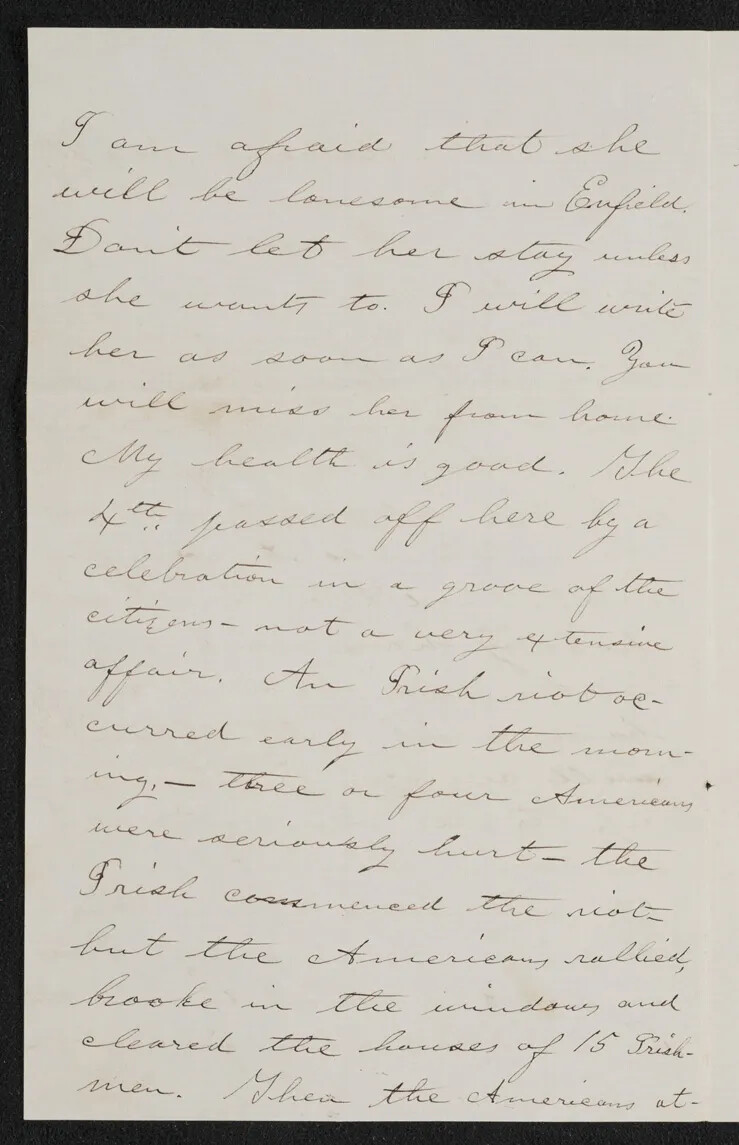 I am afraid that she
will be lonesome in Enfield.
Don't let her stay unless
she wants to. I will write
her as soon as I can. You
will miss her from home.
My health is good. The
4th. passed off here by a
celebration in a grove of the
citizens - not a very extensive
affair. An Irish riot oc-
curred early in the morn-
ing, - three or four Americans
were seriously hurt - the
Irish commenced the riot -
but the Americans rallied,
brooke in the windows and
cleared the houses of 15 Irish-
men. When the Americans at-